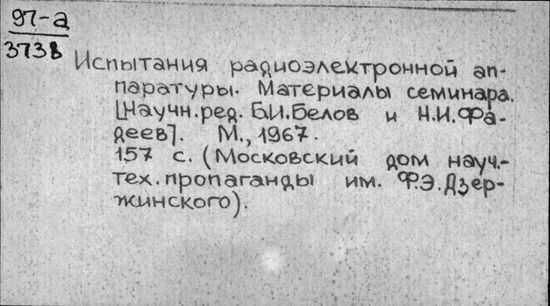 97-а
3738
Испытания радиоэлектронной ап-
паратуры. Материалы семинара.
[Научн.ред. Б.И.Белов и Н.И.Фа-
деев]. М., 1967.
157 с. (Московский дом науч.-
тех. пропаганды им. Ф.Э.Дзер-
жинского).